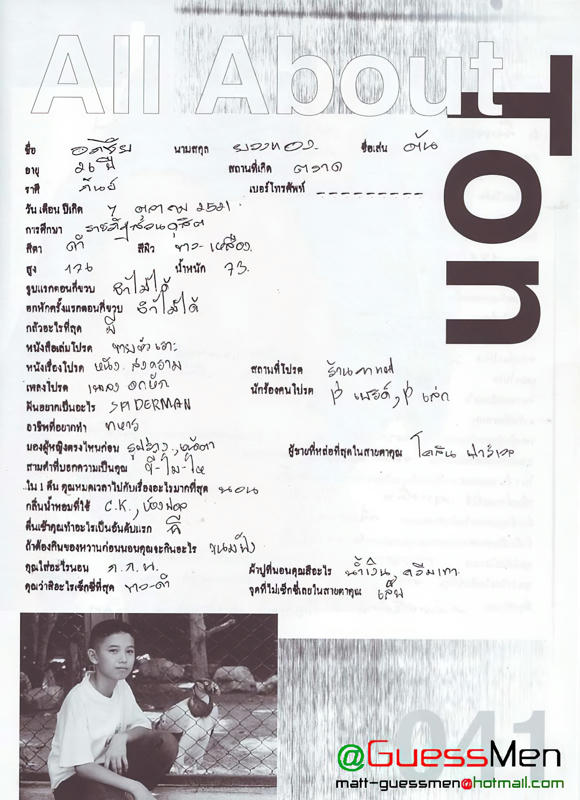 All About
Ton
ชื่อ อภิชัย นามสกุล ยวงทอง ชื่อเล่น ต้น
อายุ 26 ปี สถานที่เกิด ตราด
ราศี กันย์ เบอร์โทรศัพท์ - - - - - - - - - -
วัน เดือน ปีเกิด 7 ตุลาคม 2521
การศึกษา ราชภัฏสวนดุสิต
สีตา ดำ สีผิว ขาว-เหลือง
สูง 172 น้ำหนัก 73.
จูบแรกตอนกี่ขวบ จำไม่ได้
อกหักครั้งแรกตอนกี่ขวบ จำไม่ได้
กลัวอะไรที่สุด ผี
หนังสือเล่มโปรด ขายหัวเราะ
หนังเรื่องโปรด หนังสงคราม สถานที่โปรด ร้านกาแฟ
เพลงโปรด เพลงอกหัก นักร้องคนโปรด
ฝันอยากเป็นอะไร SPIDERMAN
อาชีพที่อยากทำ ทหาร
มองผู้หญิงตรงไหนก่อน รูปร่าง, หน้าตา ผู้ชายที่หล่อที่สุดในสายตาคุณ โคลิน ฟาร์เรล
สามคำที่บอกความเป็นคุณ ขี้-โม-โห
ใน 1 คืน คุณหมดเวลาไปกับเรื่องอะไรมากที่สุด นอน
กลิ่นน้ำหอมที่ใช้ C.K.,
ตื่นเช้าคุณทำอะไรเป็นอันดับแรก ฉี่
ถ้าต้องกินของหวานก่อนนอนคุณจะกินอะไร ขนมปัง
คุณใส่อะไรนอน ก.ก.น. ผ้าปูที่นอนคุณสีอะไร น้ำเงิน, ครีมเทา
คุณว่าสีอะไรเซ็กซี่ที่สุด ขาว-ดำ จุดที่ไม่เซ็กซี่เลยในสายตาคุณ เล็บ
041
@GuessMen
matt-guessmen@hotmail.com